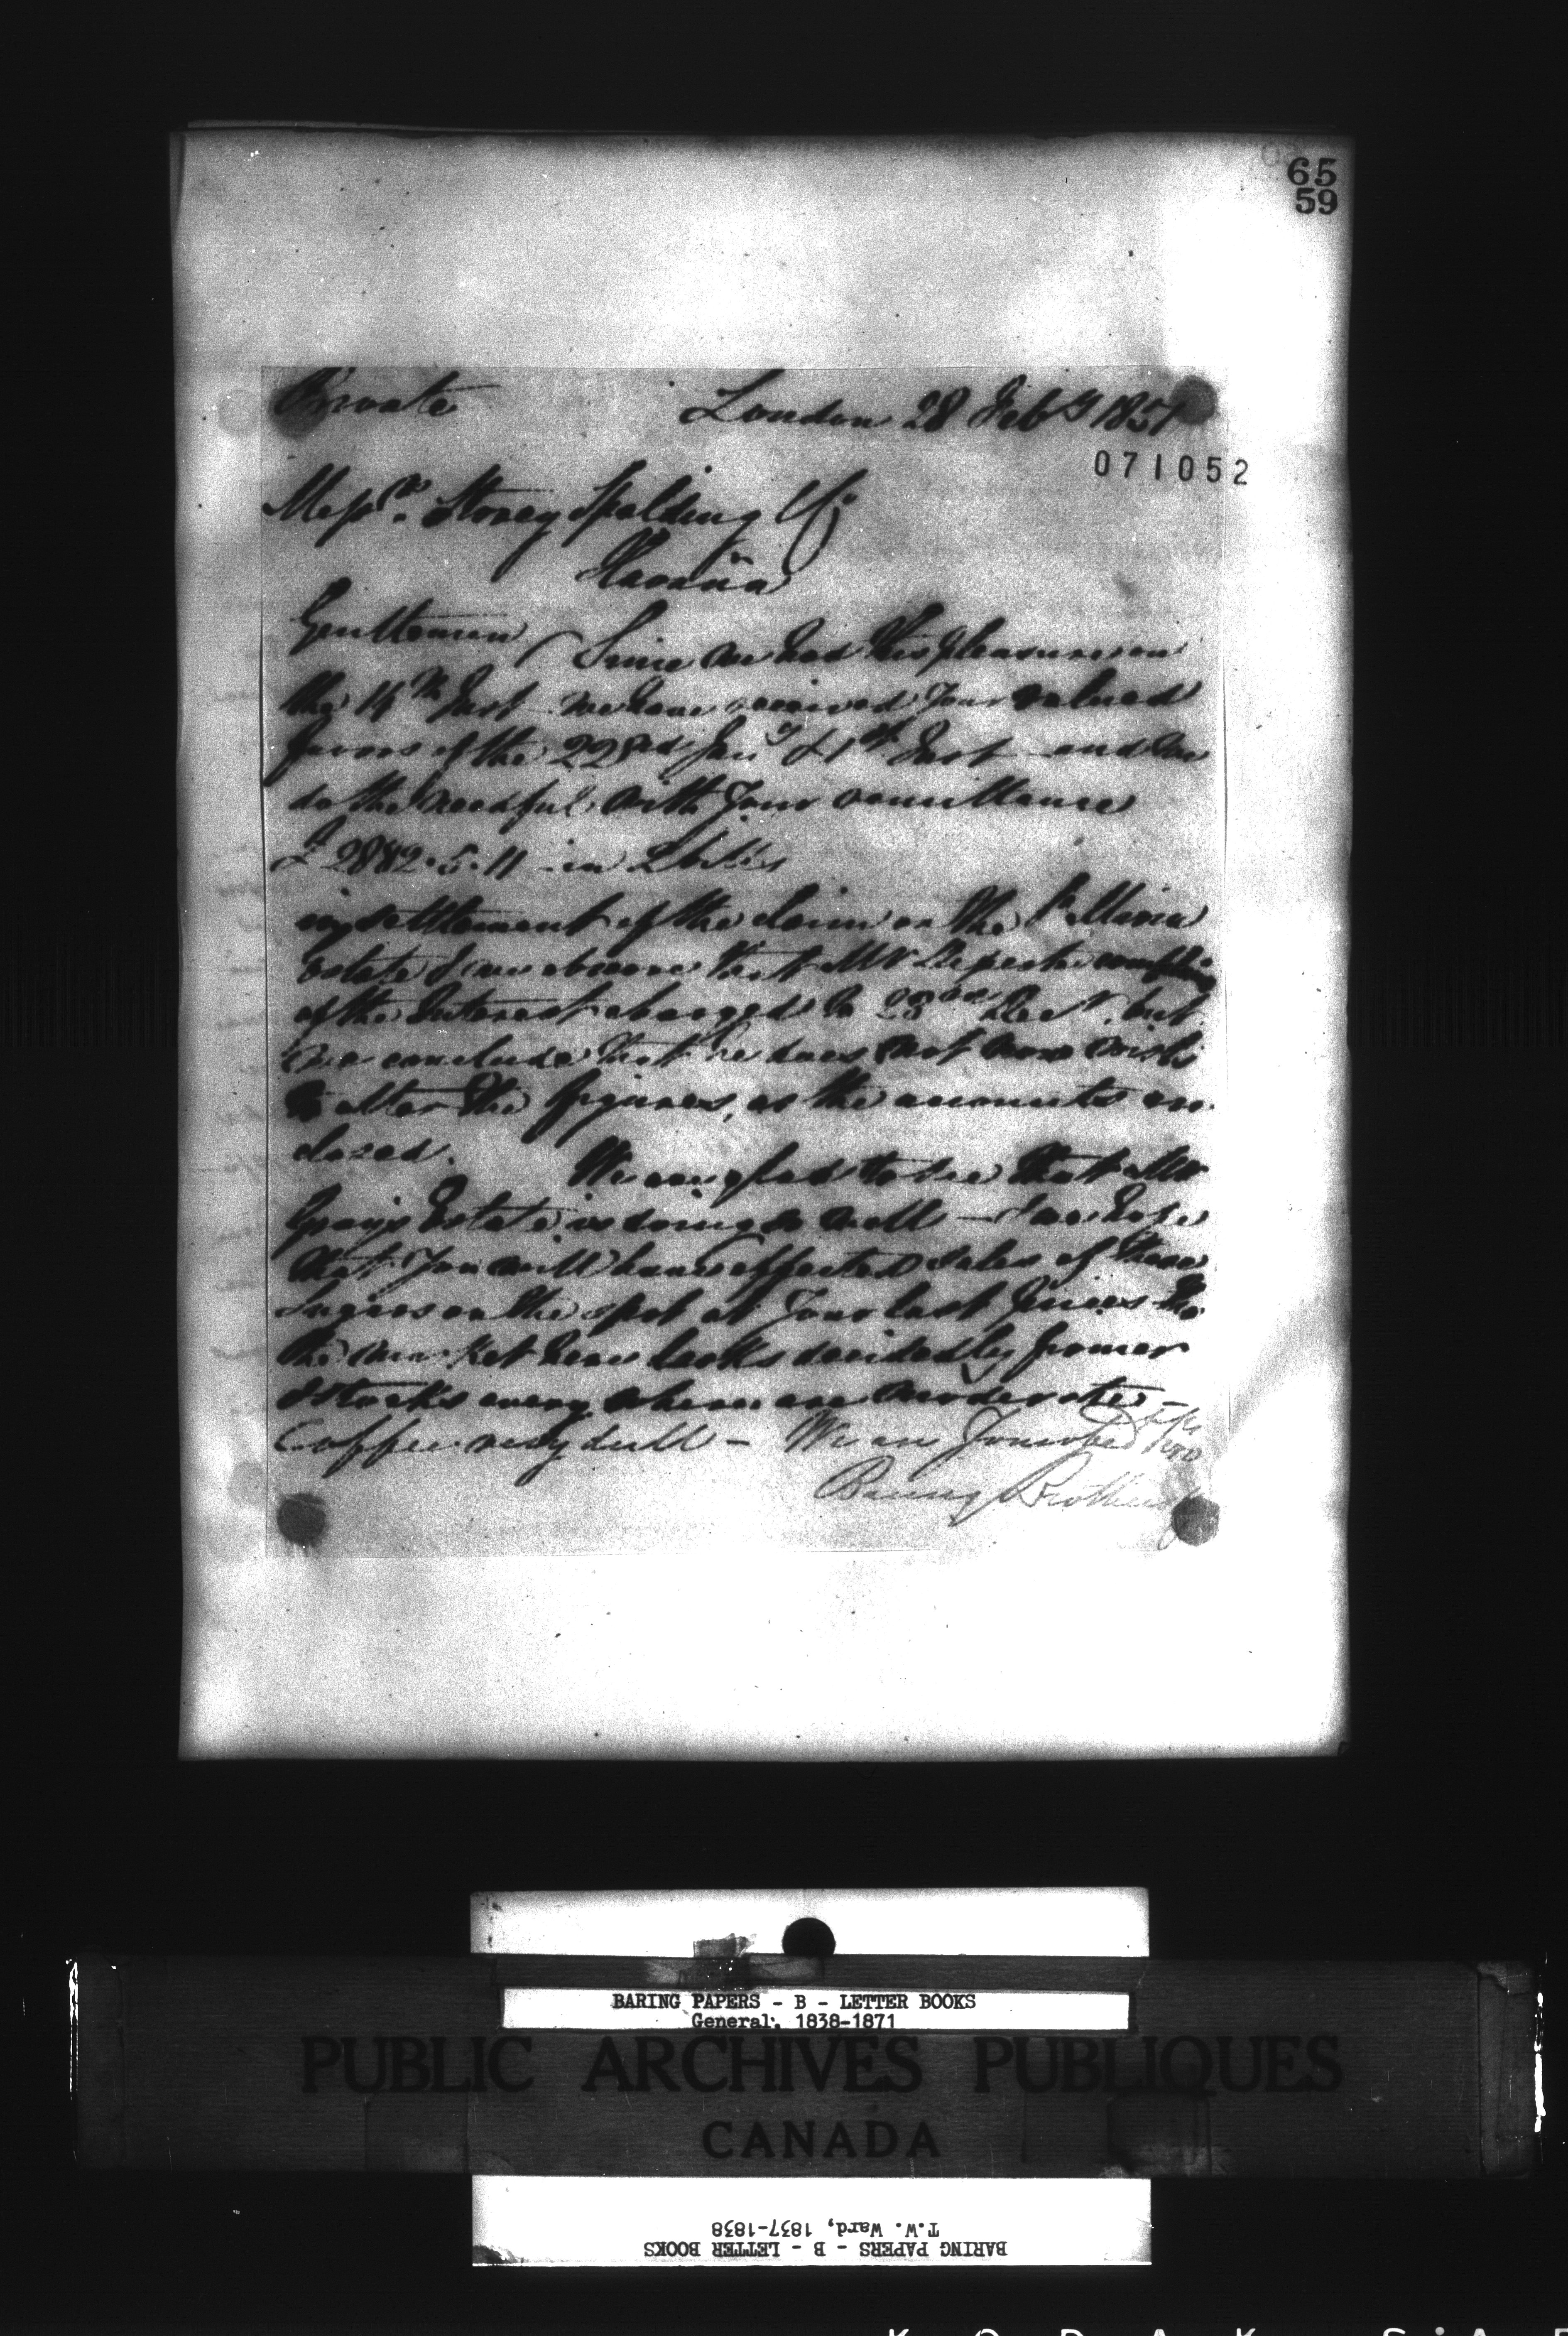 65
59
Private London 28 Feby 1851
071052
Messrs. Storey Spalding & Co
Havana
Gentlemen, Since we had this pleasure on
the 14th Inst we have received Your valued
favors of the 22nd Jany & 1st Inst and
do the needful with Your remittance
£ 2882.5.11 in
settlement of the claim on the Sta Maria
estate & we observe that Mr
of the Interest charged to 23rd Decr. but
we conclude that he does not now wish
to alter the figures, as the accounts are
closed. We are glad to see that Mr
Gray's Estate is doing so well — & we hope
that You will have effected sales of these
Sugars on the spot at Your last prices
the market here looks decidedly firmer
& Stocks every where are moderate —
Coffee very dull — We are Your obed
Baring Brothers
BARING PAPERS - B - LETTER BOOKS
General, 1838-1871
PUBLIC ARCHIVES PUBLIQUES
CANADA
T.W. Ward, 1837-1838
BARING PAPERS - B - LETTER BOOKS